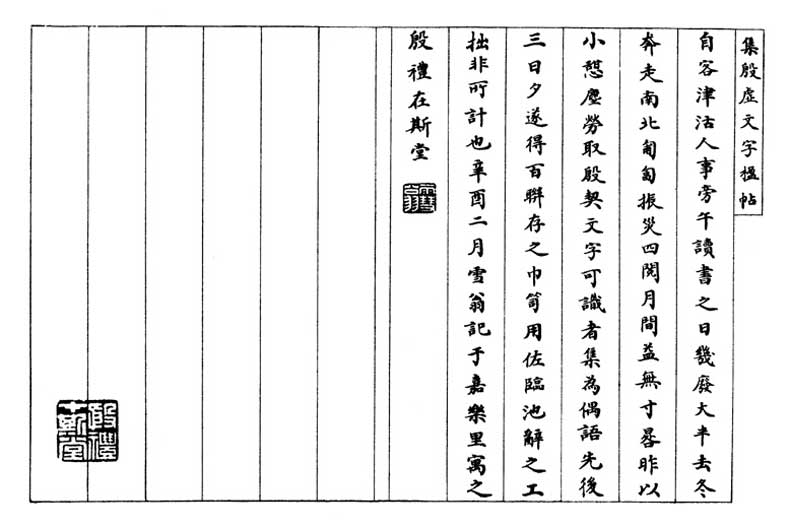 集殷虛文字楹帖
自客津沽人事旁午讀書之日幾廢大半去冬
奔走南北匍匐振災四閱月間益無寸晷昨以
小憩塵勞取殷契文字可識者集為偶語先後
三日夕遂得百聯存之巾笥用佐臨池辭之工
拙非所計也辛酉二月雪翁記于嘉樂里寓之
殷禮在斯堂
雪翁
殷禮在斯堂